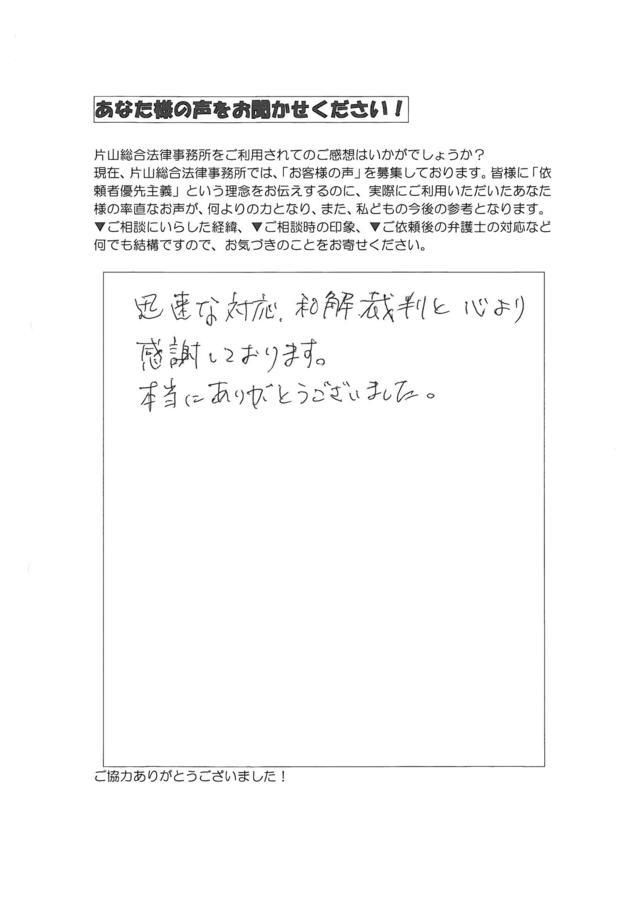 あなた様の声をお聞かせください！
片山総合法律事務所をご利用されてのご感想はいかがでしょうか？
現在、片山総合法律事務所では、「お客様の声」を募集しております。皆様に「依
頼者優先主義」という理念をお伝えするのに、実際にご利用いただいたあなた
様の率直なお声が、何よりの力となり、また、私どもの今後の参考となります。
▼ご相談にいらした経緯、▼ご相談時の印象、▼ご依頼後の弁護士の対応など
何でも結構ですので、お気づきのことをお寄せください。
迅速な対応、和解裁判と心より
感謝しております。
本当にありがとうございました。
ご協力ありがとうございました！